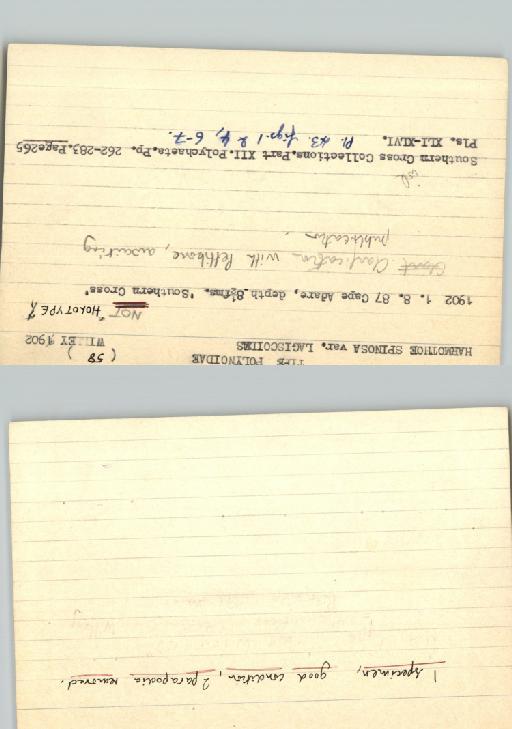 TYPE POLYNOIDAE (58)
HARMOTHOE SPINOSA var. LAGISCOITES WILLEY, 1902
NOT "HOLOTYPE"
1902 1. 8. 87 Cape Adare, depth 8½fms. "Southern Cross"
Clarification with Pettibone, awaiting
publication.
Southern Cross Collections.Part XII.Polychaeta.Pp. 262-283.Page265
Pls. XLI-XLVI. Pl. 43. figs. 1 2 4, 6-7.
1 specimen, good condition, 2 parapodia removed.